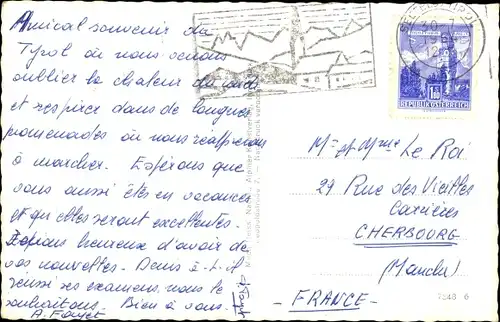 Amical souvenir du
Tyrol où nous venons
oublier la chaleur du midi
et respirer dans de longues
promenades où nous réapprenons
à marcher. Espérons que
vous aussi êtes en vacances
et qu'elles seront excellentes.
Serions heureux d'avoir de
vos nouvelles. Denis a-t-il
réussi ses examens, nous le
souhaitons. Bien à vous.
A. Fayet
30. 7.
REPUBLIK ÖSTERREICH
Mr et Mme Le Roi
29 Rue des Vieilles
Carrières
CHERBOURG
(Manche)
- FRANCE -
7248 6